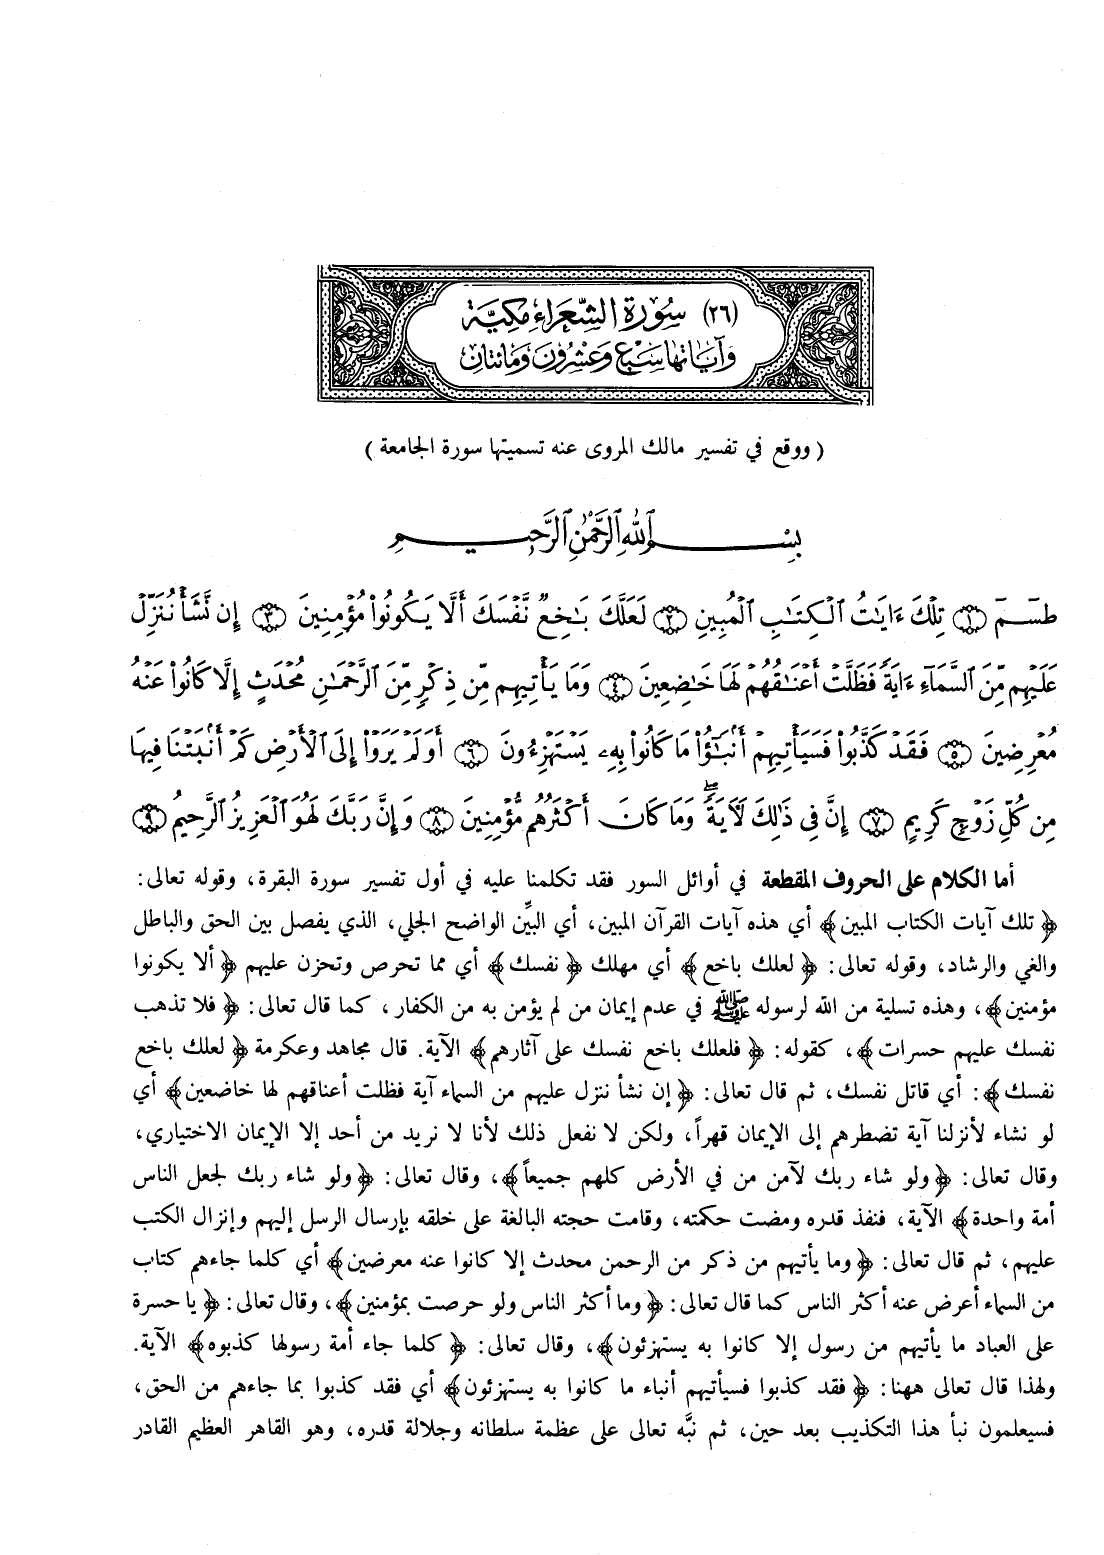 (٢٦) سُورَة الشُّعَرَاءِ مَكِيَّة
وَآيَاتهَا سَبْع وَعِشْرُونَ وَمائتَان
( ووقع في تفسير مالك المروى عنه تسميتها سورة الجامعة )
بِسْمِ ٱللَّهِ ٱلرَّحْمَٰنِ ٱلرَّحِيمِ
طسٓمٓ ﴿١﴾ تِلْكَ ءَايَٰتُ ٱلْكِتَٰبِ ٱلْمُبِينِ ﴿٢﴾ لَعَلَّكَ بَٰخِعٌ نَّفْسَكَ أَلَّا يَكُونُوا۟ مُؤْمِنِينَ ﴿٣﴾ إِن نَّشَأْ نُنَزِّلْ
عَلَيْهِم مِّنَ ٱلسَّمَآءِ ءَايَةً فَظَلَّتْ أَعْنَٰقُهُمْ لَهَا خَٰضِعِينَ ﴿٤﴾ وَمَا يَأْتِيهِم مِّن ذِكْرٍ مِّنَ ٱلرَّحْمَٰنِ مُحْدَثٍ إِلَّا كَانُوا۟ عَنْهُ
مُعْرِضِينَ ﴿٥﴾ فَقَدْ كَذَّبُوا۟ فَسَيَأْتِيهِمْ أَنۢبَٰٓؤُا۟ مَا كَانُوا۟ بِهِۦ يَسْتَهْزِءُونَ ﴿٦﴾ أَوَلَمْ يَرَوْا۟ إِلَى ٱلْأَرْضِ كَمْ أَنۢبَتْنَا فِيهَا
مِن كُلِّ زَوْجٍ كَرِيمٍ ﴿٧﴾ إِنَّ فِى ذَٰلِكَ لَءَايَةً ۖ وَمَا كَانَ أَكْثَرُهُم مُّؤْمِنِينَ ﴿٨﴾ وَإِنَّ رَبَّكَ لَهُوَ ٱلْعَزِيزُ ٱلرَّحِيمُ ﴿٩﴾
أما الكلام على الحروف المقطعة في أوائل السور فقد تكلمنا عليه في أول تفسير سورة البقرة، وقوله تعالى:
﴿ تلك آيات الكتاب المبين﴾ أي هذه آيات القرآن المبين، أي البيِّن الواضح الجلي، الذي يفصل بين الحق والباطل
والغي والرشاد، وقوله تعالى: ﴿ لعلك باخع﴾ أي مهلك ﴿نفسك﴾ أي مما تحرص وتحزن عليهم ﴿ألا يكونوا
مؤمنين﴾، وهذه تسلية من الله لرسوله ﷺ في عدم إيمان من لم يؤمن به من الكفار، كما قال تعالى: ﴿ فلا تذهب
نفسك عليهم حسرات﴾، كقوله: ﴿ فلعلك باخع نفسك على آثارهم﴾ الآية. قال مجاهد وعكرمة ﴿لعلك باخع
نفسك﴾: أي قاتل نفسك، ثم قال تعالى: ﴿ إن نشأ ننزل عليهم من السماء آية فظلت أعناقهم لها خاضعين﴾ أي
لو نشاء لأنزلنا آية تضطرهم إلى الإيمان قهراً، ولكن لا نفعل ذلك لأنا لا نريد من أحد إلا الإيمان الاختياري،
وقال تعالى: ﴿ولو شاء ربك لآمن من في الأرض كلهم جميعاً﴾، وقال تعالى: ﴿ولو شاء ربك لجعل الناس
أمة واحدة﴾ الآية، فنفذ قدره ومضت حكمته، وقامت حجته البالغة على خلقه بإرسال الرسل إليهم وإنزال الكتب
عليهم، ثم قال تعالى: ﴿ وما يأتيهم من ذكر من الرحمن محدث إلا كانوا عنه معرضين﴾ أي كلما جاءهم كتاب
من السماء أعرض عنه أكثر الناس كما قال تعالى: ﴿وما أكثر الناس ولو حرصت بمؤمنين﴾، وقال تعالى: ﴿ يا حسرة
على العباد ما يأتيهم من رسول إلا كانوا به يستهزئون﴾، وقال تعالى: ﴿ كلما جاء أمة رسولها كذبوه﴾ الآية.
ولهذا قال تعالى ههنا: ﴿ فقد كذبوا فسيأتيهم أنباء ما كانوا به يستهزئون﴾ أي فقد كذبوا بما جاءهم من الحق،
فسيعلمون نبأ هذا التكذيب بعد حين، ثم نبَّه تعالى على عظمة سلطانه وجلالة قدره، وهو القاهر العظيم القادر